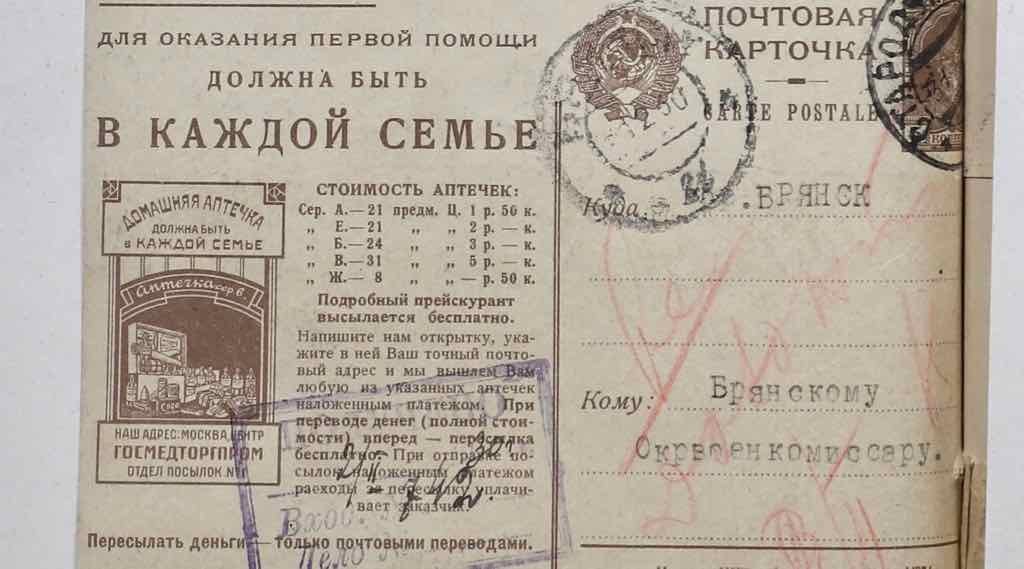 ДЛЯ ОКАЗАНИЯ ПЕРВОЙ ПОМОЩИ
ДОЛЖНА БЫТЬ
В КАЖДОЙ СЕМЬЕ
ДОМАШНЯЯ АПТЕЧКА
ДОЛЖНА БЫТЬ
в КАЖДОЙ СЕМЬЕ
Аптечка сер В.
НАШ АДРЕС: МОСКВА, ЦЕНТР
ГОСМЕДТОРГПРОМ
ОТДЕЛ ПОСЫЛОК №1
СТОИМОСТЬ АПТЕЧЕК:
Сер. А.—21 предм. Ц. 1 р. 50 к.
„ Е.—21 „ „ 2 р. — к.
„ Б.—24 „ „ 3 р. — к.
„ В.—31 „ „ 5 р. — к.
„ Ж.— 8 „ „ — р. 50 к.
Подробный прейскурант
высылается бесплатно.
Напишите нам открытку, ука-
жите в ней Ваш точный почто-
вый адрес и мы вышлем Вам
любую из указанных аптечек
наложенным платежом. При
переводе денег (полной стои-
мости) вперед — пересылка
бесплатно. При отправке по-
сылок наложенным платежом
расходы за пересылку уплачи-
вает заказчик.
Вход. №
Дело №
Пересылать деньги — только почтовыми переводами.
ПОЧТОВАЯ
КАРТОЧКА
CARTE POSTALE
Куда
.БРЯНСК
Кому:
Брянскому
Окрвоенкомиссару.